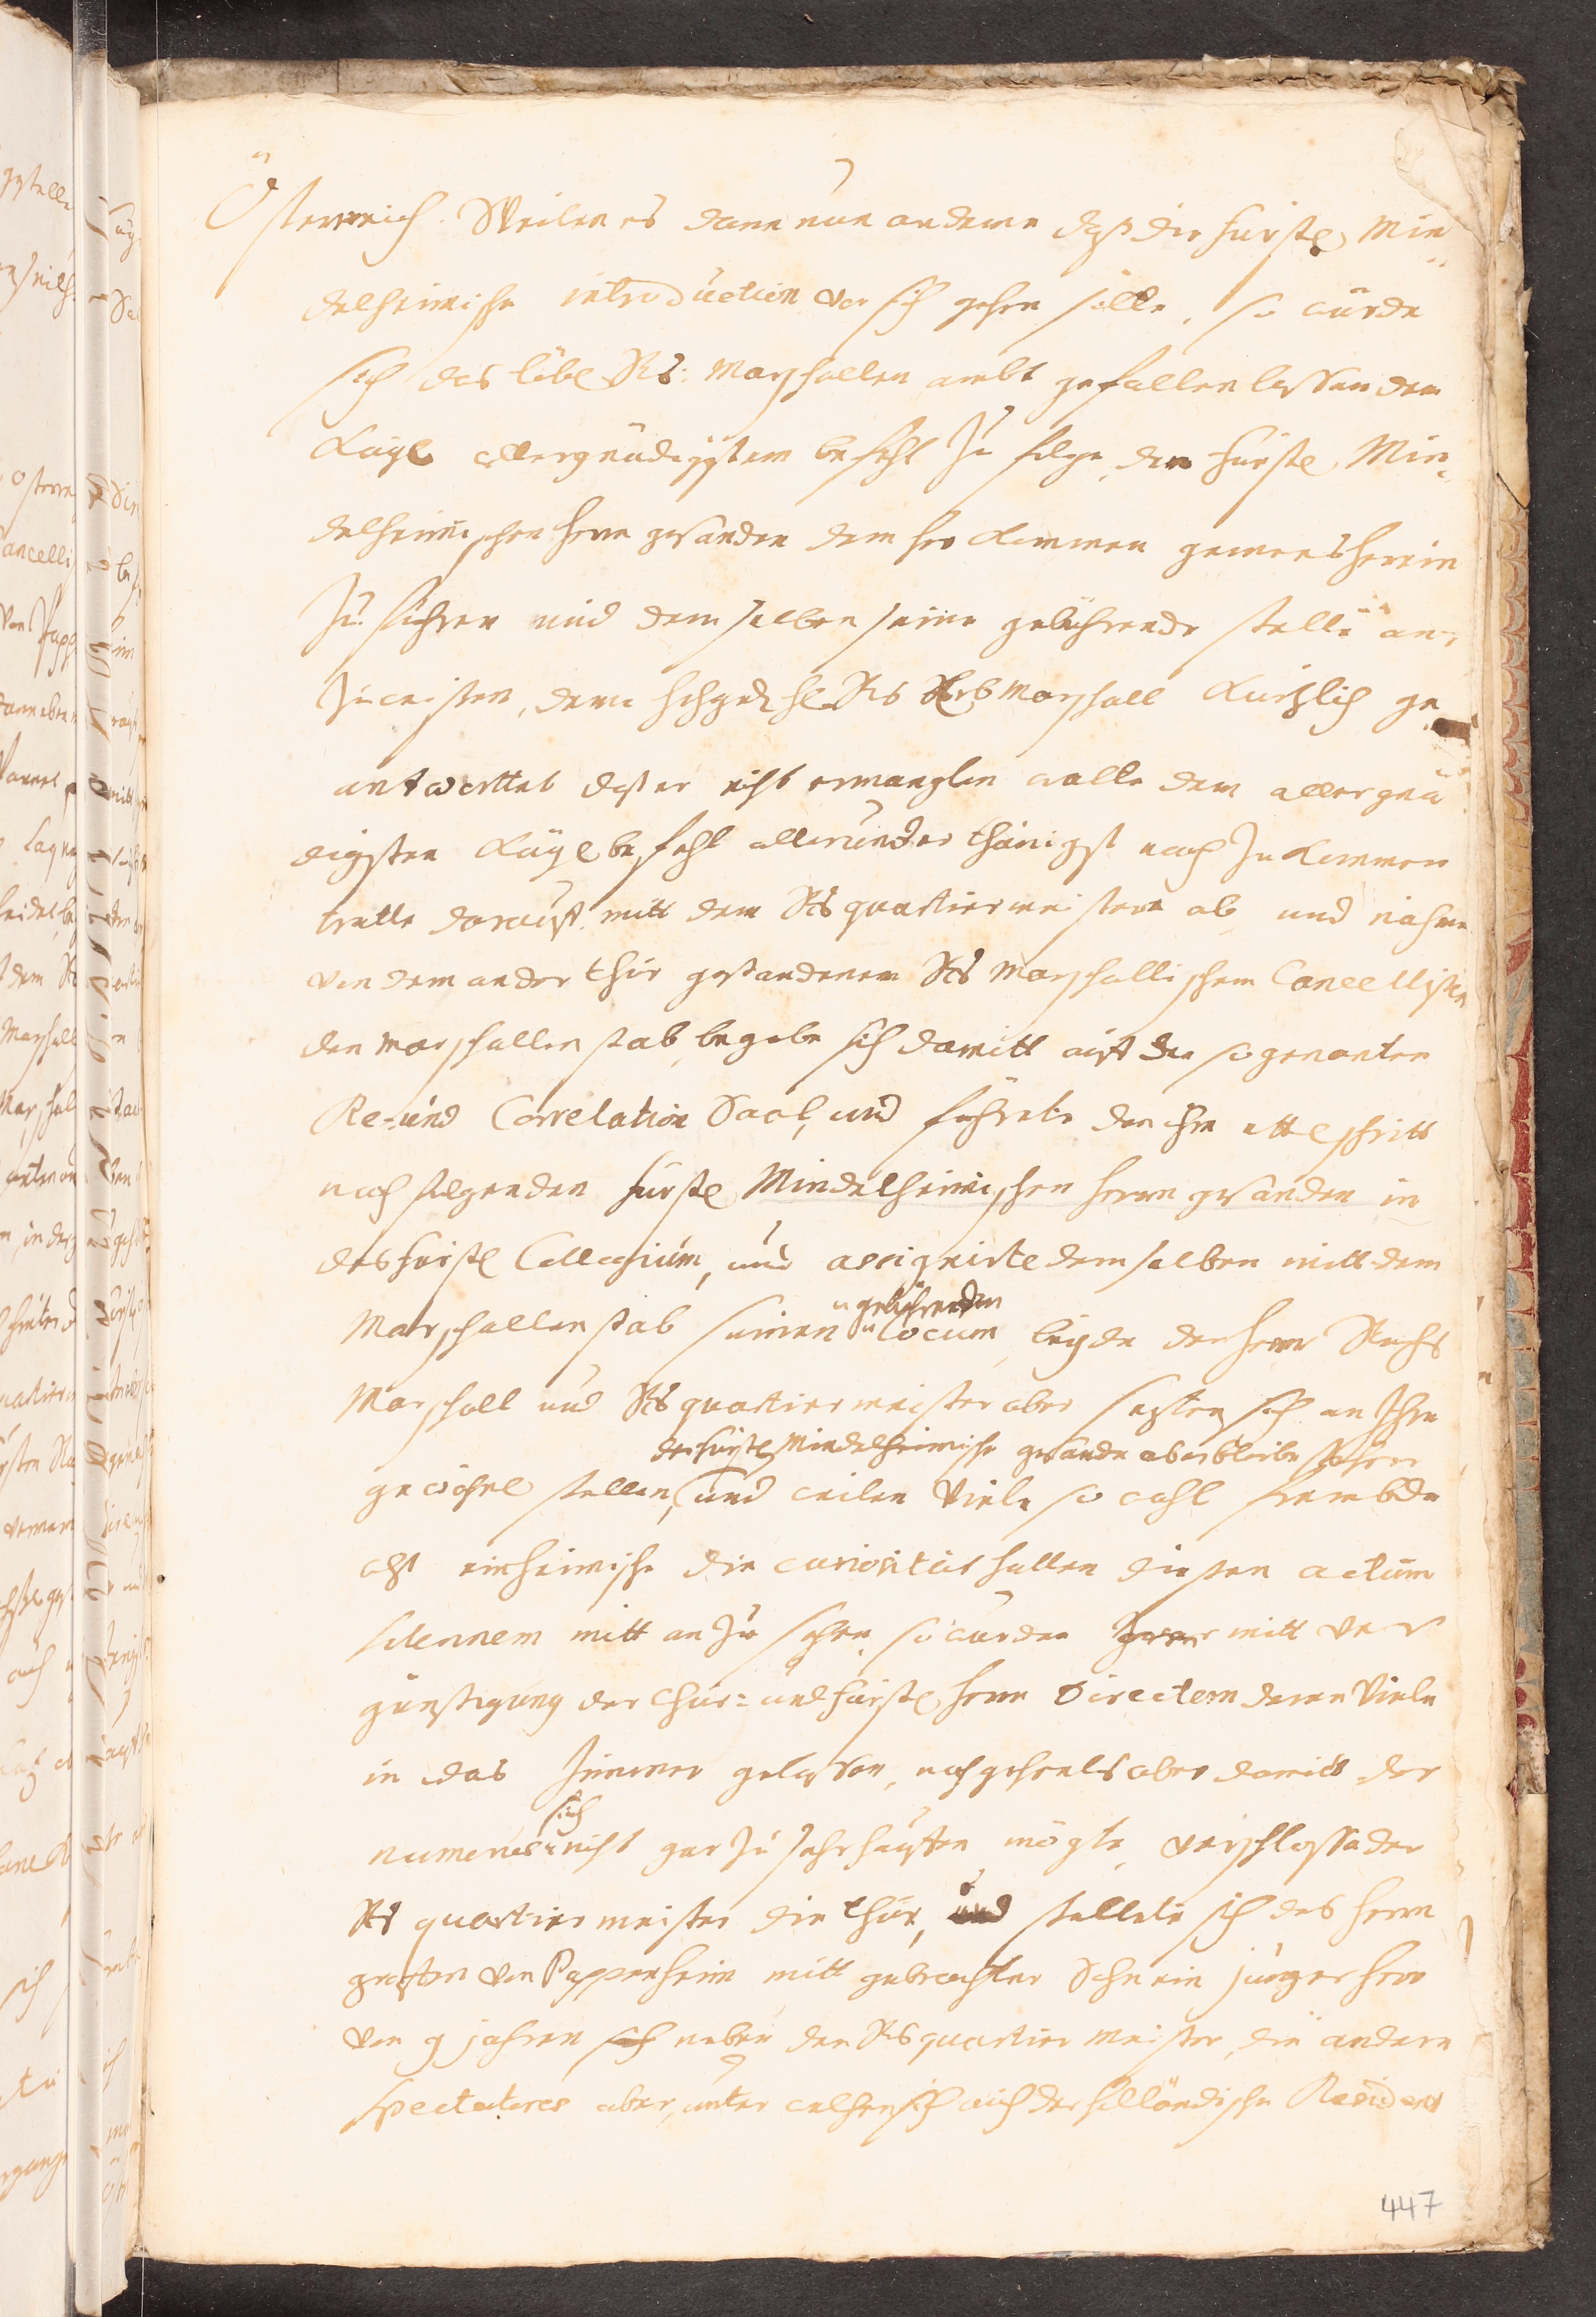 Österreich. Weilen es dann nun andeme daß die fürstl Min-
delheimische introduction vor sich gehen solle, so würde
sich das löbl Rs: Marschallen ambt gefallen lassen dem
Kayl allergnädigstem befehl zu folge, den fürstl Min-
delheimischen herrn gesanden dem her kommen gemees herein
zu führen und dem selben seine gebührende stelle an-
zuweisen, deme hl Rs Erb Marschall kürtzlich ge
antworttet daß er nicht ermanglen wolle dem allergnä
digsten Kayl befehl allerunder thänigst nach zu kommen
tratte darauf mitt dem Rs quartiermeistern ab, und nahme
von dem an der thür gestandenem Rs Marschallischem Cancellisten
den marschallen stab, begabe sich damitt auf den so genanten
Re- und Correlation Saal, und führete den ihm ettl schritt
nach folgenden fürstl Mindelheimischen herrn gesanden in
das fürstl Collegium, und assignirte dem selben mitt dem
Marschallen stab seinen gebührenden locum, beyde der herr Reichs
Marschall und Rs quartiermeister aber setzten sich an Ihre
der fürstl Mindelheimische gesande aber bliebe stehen
gewöhnl stellen, und weilen Viele so wohl frembde
alß einheimische die curiositat hatten diesen actum
solennem mitt an zu sehen, so wurden mitt ver
günstigung der Chur- und fürstl herrn Directorn deren Viele
in das Zimmer gelassen, nachgehents aber damitt der
numerus sich nicht gar zu sehr häuffen mögte, verschlosse der
Rs quartiermeister die thür, und stellete sich des herrn
graffen von Pappenheim mitt gebrachter Sohn ein junger herr
von 9 jahren sich neben den Rs quartier meister, die andere
spectatores aber, unter welchen sich auch der holländische Resident
447